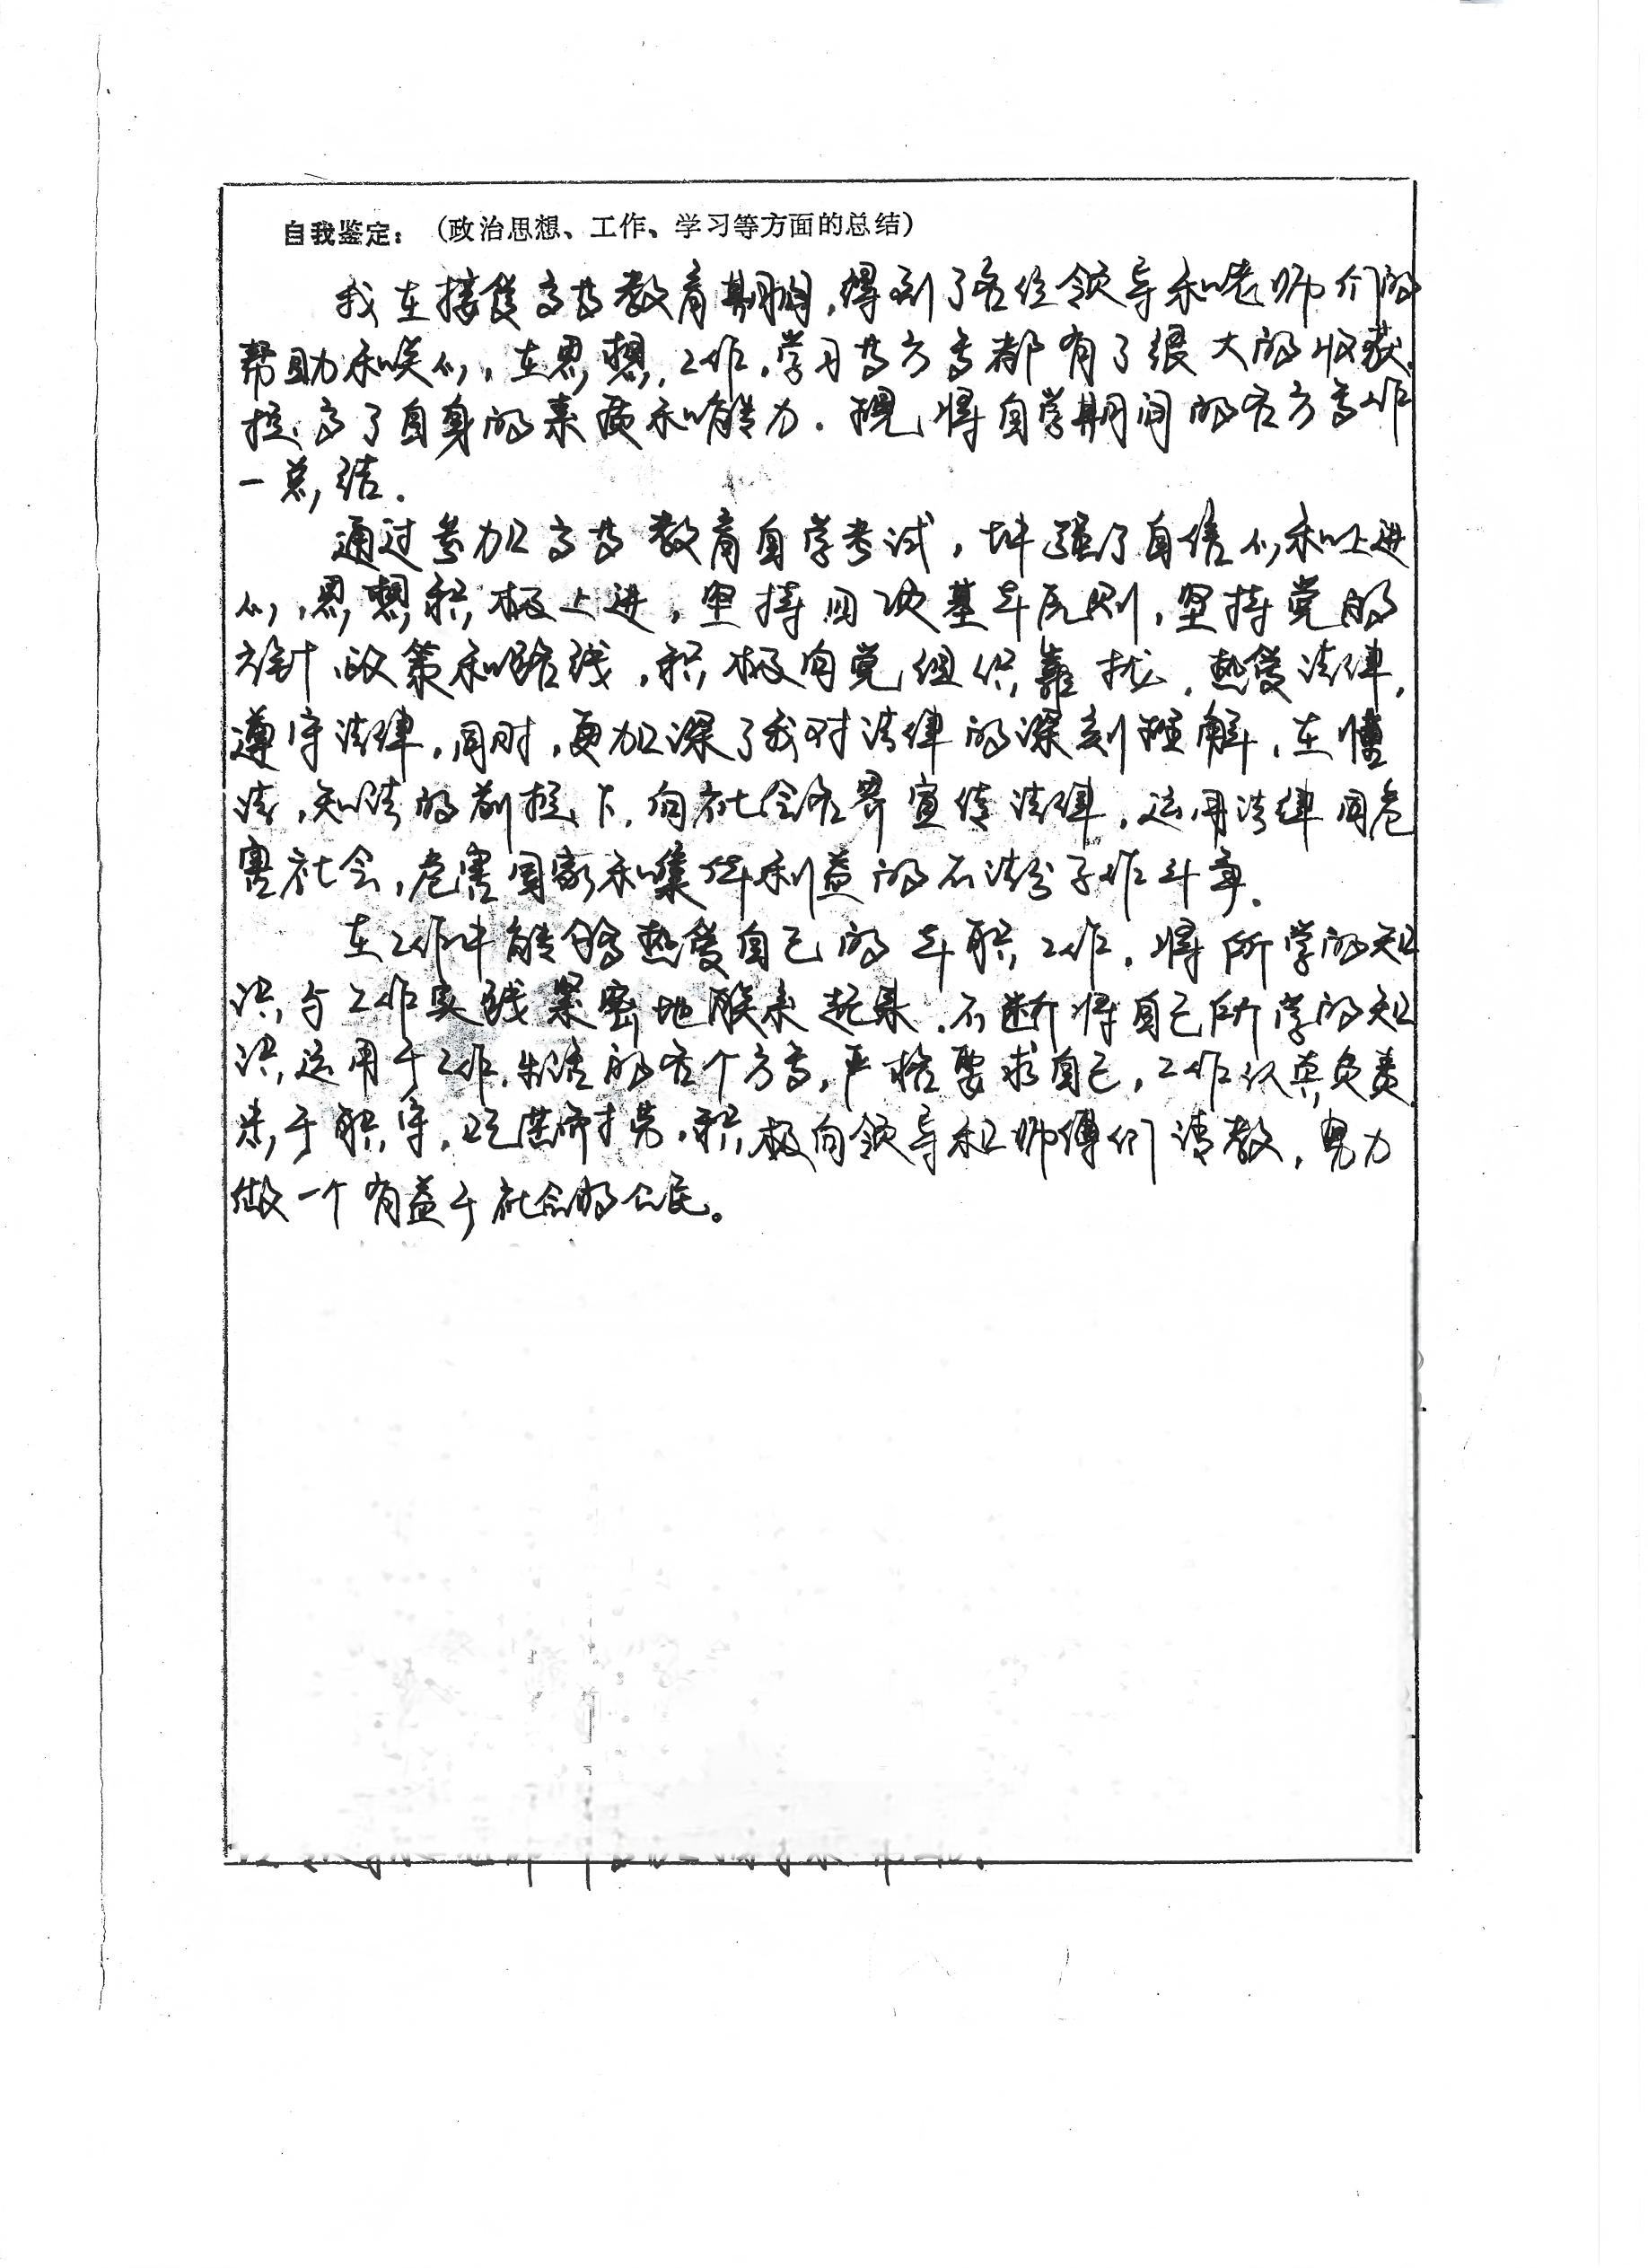 自我鉴定：（政治思想、工作、学习等方面的总结）
我在接受高等教育期间，得到了各位领导和老师们的
帮助和关心，在思想，工作，学习等方面都有了很大的收获，
提高了自身的素质和能力．现将自学期间的各方面作
一总结．
通过参加高等教育自学考试，增强了自信心和上进
心，思想积极上进，坚持四项基本原则，坚持党的
方针、政策和路线，积极向党组织靠拢，热爱法律，
遵守法律．同时，更加深了我对法律的深刻理解，在懂
法，知法的前提下，向社会各界宣传法律，运用法律同危
害社会，危害国家和集体利益的不法分子作斗争．
在工作中能够热爱自己的本职工作，将所学的知
识与工作实践紧密地联系起来．不断将自己所学的知
识运用于工作，生活的各个方面，严格要求自己，工作认真负责
忠于职守，吃苦耐劳，积极向领导和师傅们请教，努力
做一个有益于社会的公民。